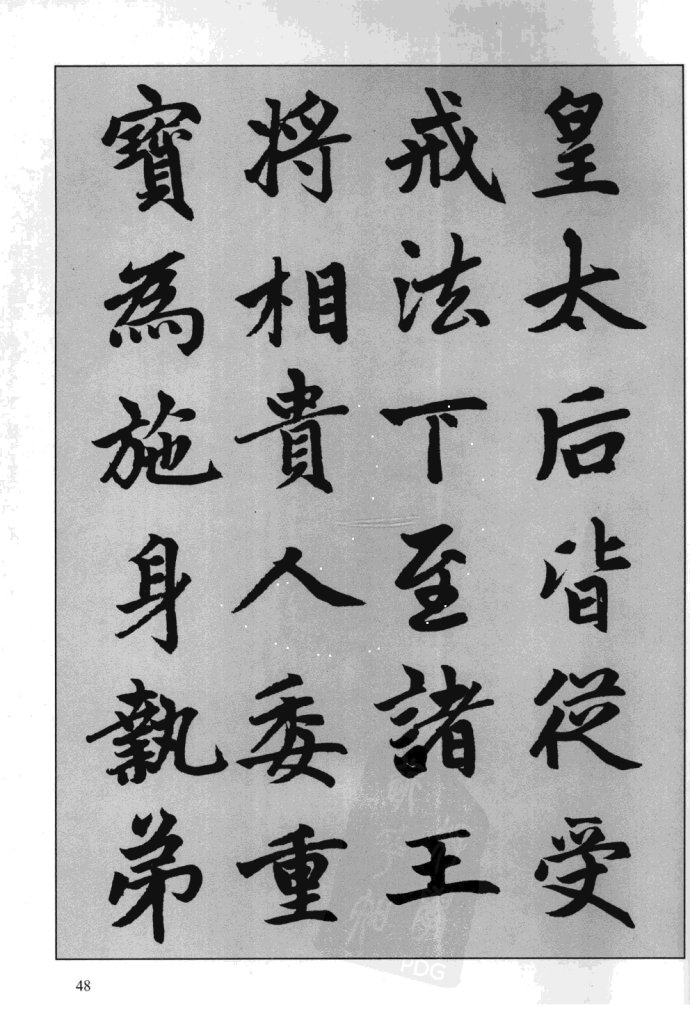 皇太后皆從受
戒法下至諸王
將相貴人委重
寶為施身執弟
48
PDG